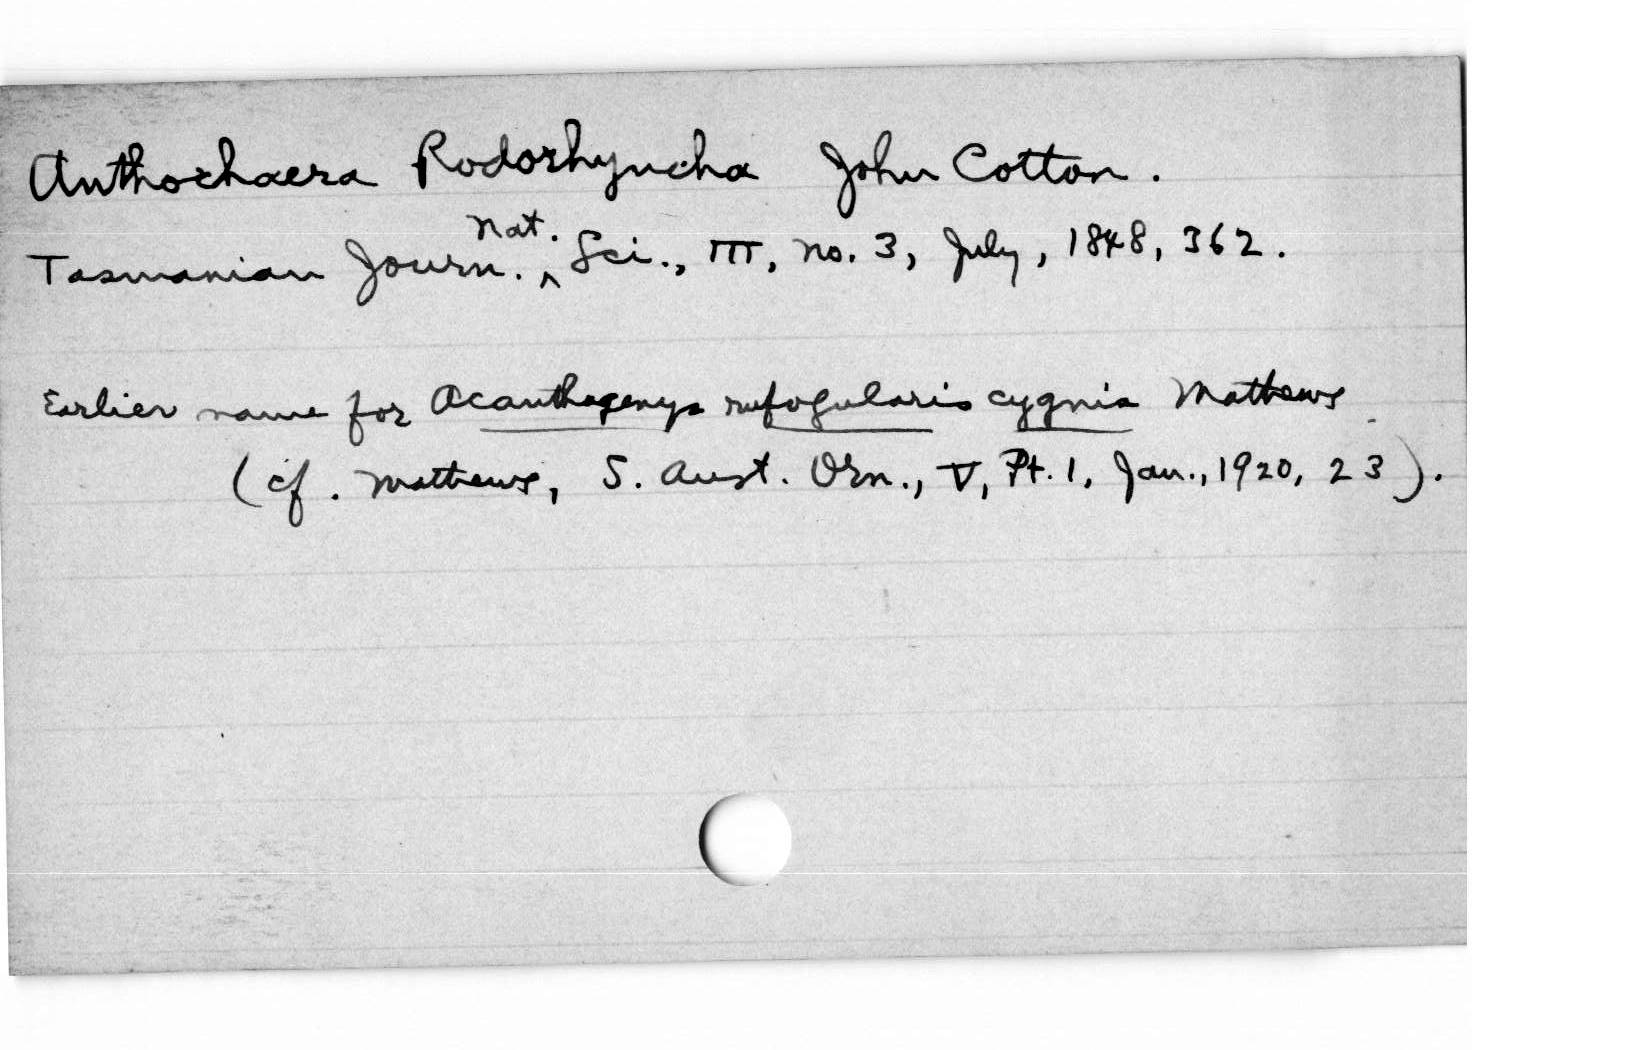 Anthochaera Rodorhyncha John Cotton.
Tasmanian Journ. Nat. Sci., III, no. 3, July, 1848, 362.
Earlier name for Acanthagenys rufogularis cygnis Mathews
(cf. Mathews, S. Aust. Orn., V, Pt. 1, Jan., 1920, 23).